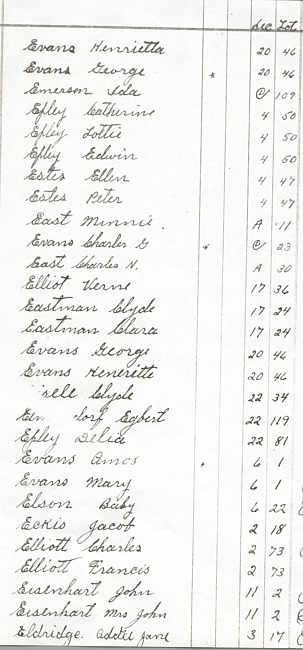 Sec Lot
Evans Henrietta 20 46
Evans George * 20 46
Emerson Ida C 109
Epley Catherine 4 50
Epley Lottie 4 50
Epley Edwin 4 50
Estes Ellen 4 47
Estes Peter 4 47
East Minnie. A 11
Evans Charles G * C 23
East Charles N. A 30
Elliot Verne 17 36
Eastman Clyde 17 24
Eastman Clara 17 24
Evans George 20 46
Evans Henerette 20 46
sell Clyde 22 34
Egbert 22 119
Epley Delia 22 81
Evans Amos * 6 1
Evans Mary 6 1
Elson Baby 6 22
Eckis Jacob 2 18
Elliott Charles 2 73
Elliott Francis 2 73
Eisenhart John 11 2
Eisenhart Mrs John 11 2
Eldridge Addie Jane 3 17